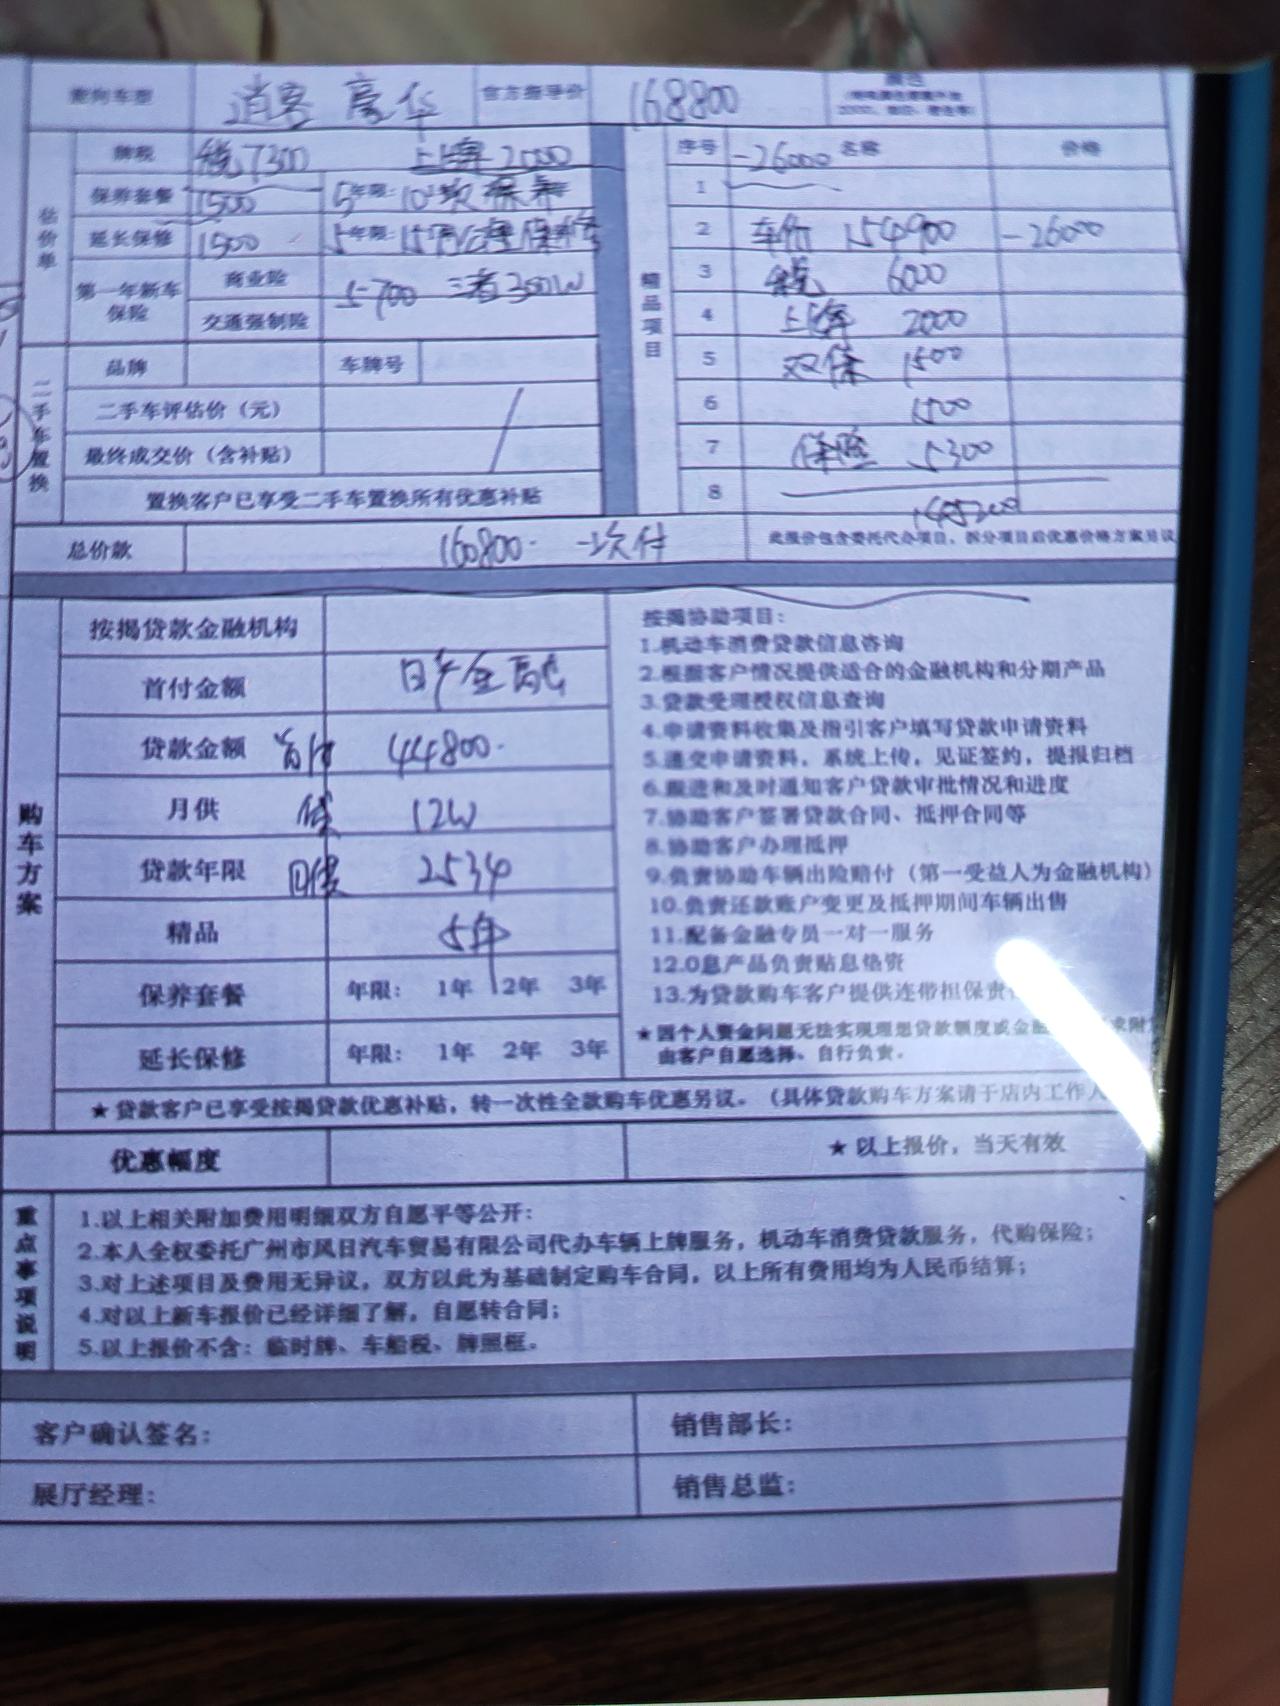 意向车型 逍客 豪华 官方指导价 168800 颜色
估价单
牌税 税7300 上牌2000
保养套餐 1500 5年限:10次保养
保 延长保修 1500 5年限:15万公里保修
第一年新车保险 商业险 5700 三者300W
交通强制险
精品项目
序号 -26000 名称 价格
1
2 车价 154900 -26000
3 税 6000
4 上牌 2000
5 双保 1500
6 1500
7 保险 5300
8
145200
二手车置换
品牌 车牌号
二手车评估价（元）
最终成交价（含补贴）
置换客户已享受二手车置换所有优惠补贴
总价款 160800. 一次付 此报价包含委托代办项目，拆分项目后优惠价格方案另议
购车方案
按揭贷款金融机构
首付金额 日产金融
贷款金额 首付 44800.
月供 贷 12W
贷款年限 月供 2534
精品 5年
保养套餐 年限： 1年 2年 3年
延长保修 年限： 1年 2年 3年
按揭协助项目：
1.机动车消费贷款信息咨询
2.根据客户情况提供适合的金融机构和分期产品
3.贷款受理授权信息查询
4.申请资料收集及指引客户填写贷款申请资料
5.递交申请资料，系统上传，见证签约，提报归档
6.跟进和及时通知客户贷款审批情况和进度
7.协助客户签署贷款合同、抵押合同等
8.协助客户办理抵押
9.负责协助车辆出险赔付（第一受益人为金融机构）
10.负责还款账户变更及抵押期间车辆出售
11.配备金融专员一对一服务
12.0息产品负责贴息垫资
13.为贷款购车客户提供连带担保责
★因个人资金问题无法实现理想贷款额度或金融 求附
由客户自愿选择、自行负责。
★贷款客户已享受按揭贷款优惠补贴，转一次性全款购车优惠另议。（具体贷款购车方案请于店内工作人
优惠幅度 ★以上报价，当天有效
重点事项说明
1.以上相关附加费用明细双方自愿平等公开：
2.本人全权委托广州市风日汽车贸易有限公司代办车辆上牌服务，机动车消费贷款服务，代购保险；
3.对上述项目及费用无异议，双方以此为基础制定购车合同，以上所有费用均为人民币结算；
4.对以上新车报价已经详细了解，自愿转合同；
5.以上报价不含：临时牌、车船税、牌照框。
客户确认签名： 销售部长：
展厅经理： 销售总监：